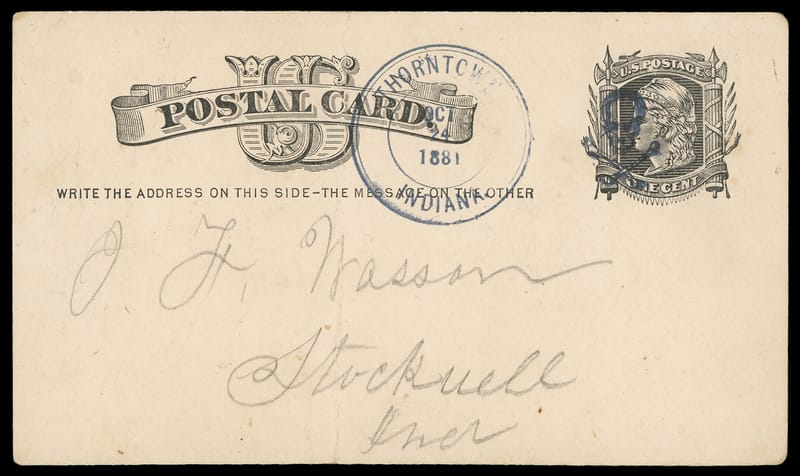 US
POSTAL CARD.
THORNTOWN
OCT
24
1881
INDIANA.
U.S. POSTAGE
ONE CENT
WRITE THE ADDRESS ON THIS SIDE–THE MESSAGE ON THE OTHER
J. F. Wasson
Stockwell
Ind